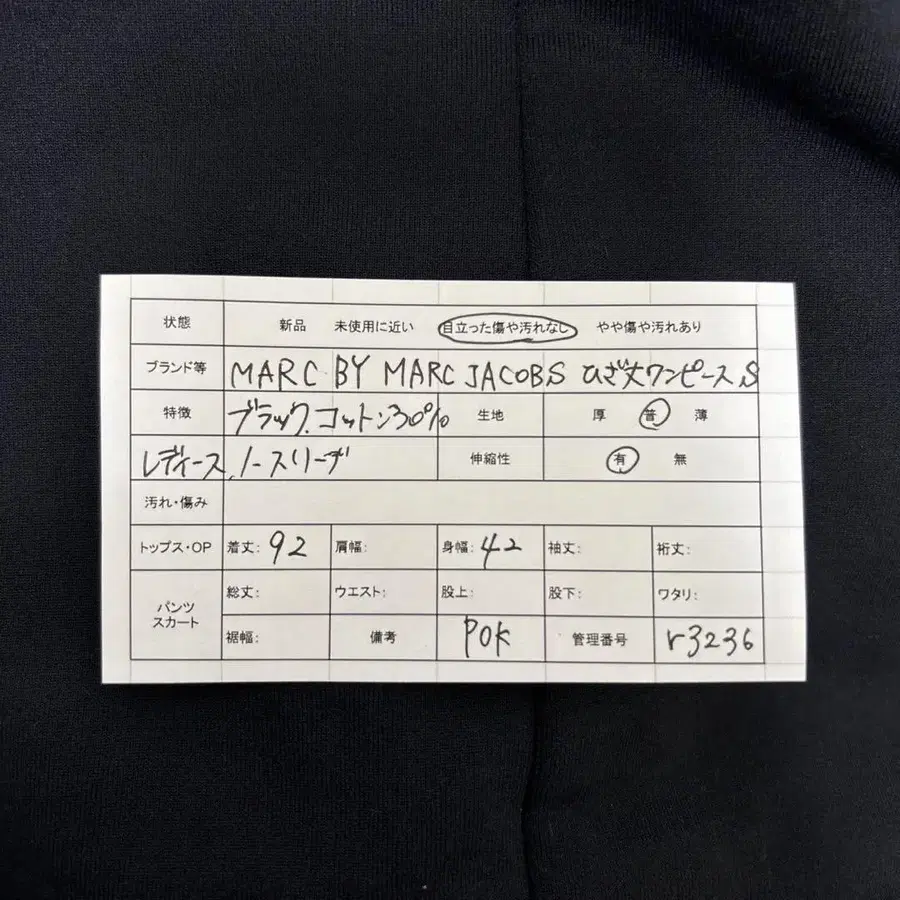 状態 新品 未使用に近い 目立った傷や汚れなし やや傷や汚れあり
ブランド等 MARC BY MARC JACOBS ひざ丈ワンピース S
特徴 ブラック.コットン30% 生地 厚 普 薄
レディース.ノースリーブ 伸縮性 有 無
汚れ・傷み
トップス・OP 着丈: 92 肩幅: 身幅: 42 袖丈: 裄丈:
パンツ スカート 総丈: ウエスト: 股上: 股下: ワタリ:
裾幅: 備考 POK 管理番号 r3236